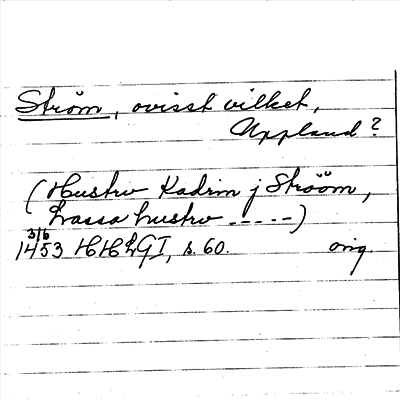 Ström, ovisst vilket,
Uppland?
(Hustru Kadrin j Strööm,
Lassa hustru -----)
3/6
1453 HHLGI, s. 60. orig.